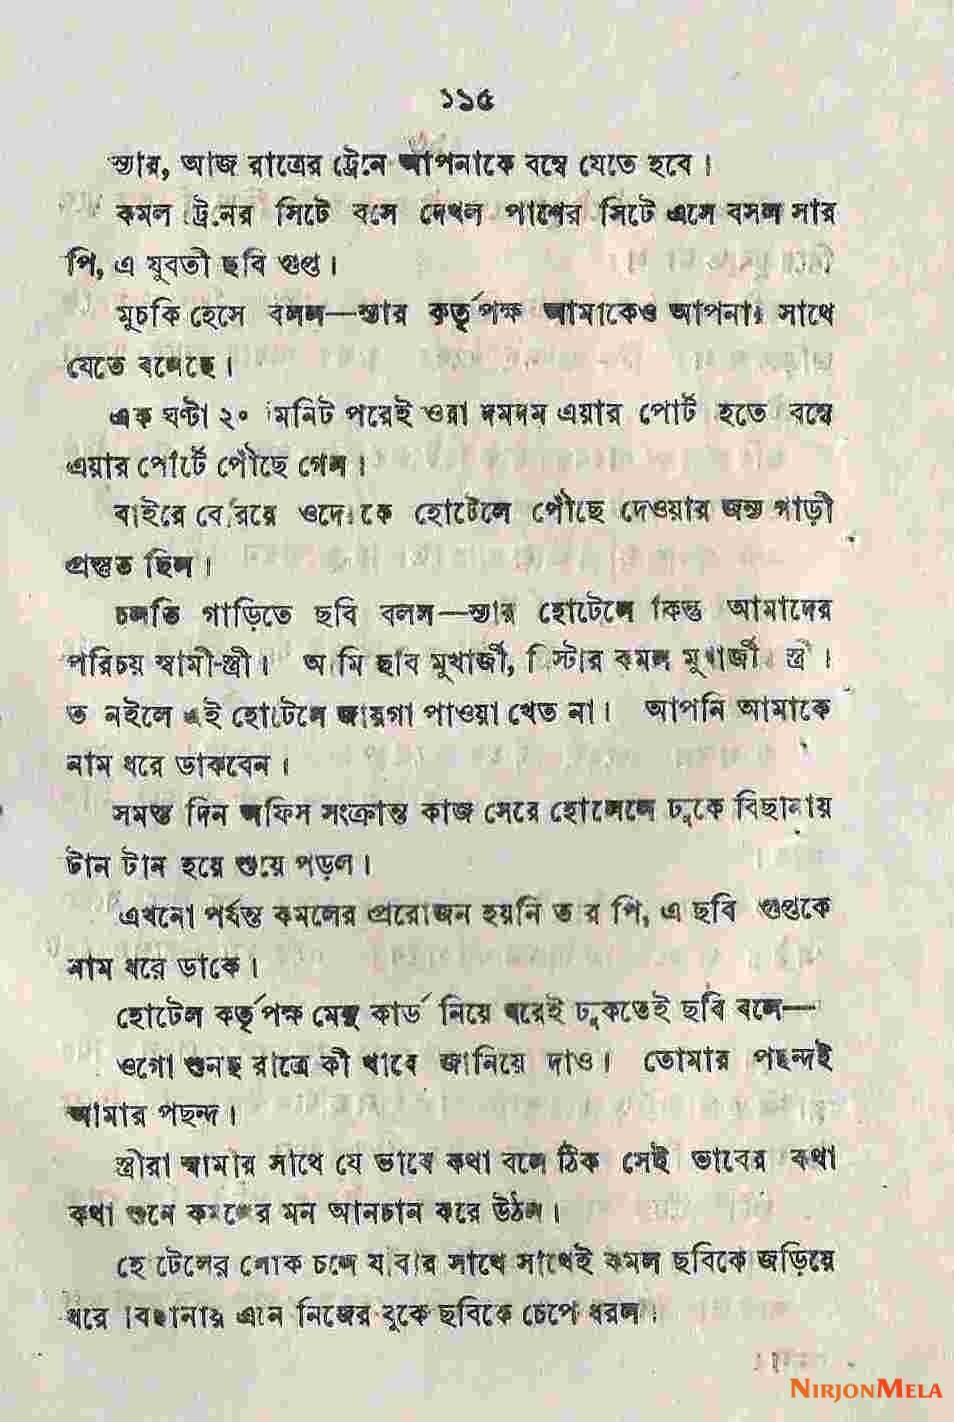 ১১৫
স্যার, আজ রাত্রের ট্রেনে আপনাকে বম্বে যেতে হবে।
কমল ট্রেনের সিটে বসে দেখল পাশের সিটে এসে বসল সার
পি, এ যুবতী ছবি গুপ্ত।
মুচকি হেসে বলল—স্যার কর্তৃপক্ষ আমাকেও আপনার সাথে
যেতে বলেছে।
এক ঘণ্টা ২০ মিনিট পরেই ওরা দমদম এয়ার পোর্ট হতে বম্বে
এয়ার পোর্টে পৌঁছে গেল।
বাইরে বেরিয়ে ওদেরকে হোটেলে পৌঁছে দেওয়ার জন্য গাড়ী
প্রস্তুত ছিল।
চলতি গাড়িতে ছবি বলল—স্যার হোটেলে কিন্তু আমাদের
পরিচয় স্বামী-স্ত্রী। আমি ছবি মুখার্জী, মিস্টার কমল মুখার্জী স্ত্রী।
ত নইলে এই হোটেলে জায়গা পাওয়া যেত না। আপনি আমাকে
নাম ধরে ডাকবেন।
সমস্ত দিন অফিস সংক্রান্ত কাজ সেরে হোটেলে ঢুকে বিছানায়
টান টান হয়ে শুয়ে পড়ল।
এখনো পর্যন্ত কমলের প্রয়োজন হয়নি তার পি, এ ছবি গুপ্তকে
নাম ধরে ডাকে।
হোটেল কর্তৃপক্ষ মেনু কার্ড নিয়ে ঘরেই ঢুকতেই ছবি বলে—
ওগো শুনছ রাত্রে কী খাবে জানিয়ে দাও। তোমার পছন্দই
আমার পছন্দ।
স্ত্রীরা স্বামীর সাথে যে ভাবে কথা বলে ঠিক সেই ভাবের কথা
কথা শুনে কমলের মন আনচান করে উঠল।
হোটেলের লোক চলে যাবার সাথে সাথেই কমল ছবিকে জড়িয়ে
ধরে বিছানায় এনে নিজের বুকে ছবিকে চেপে ধরল।
NIRJONMELA